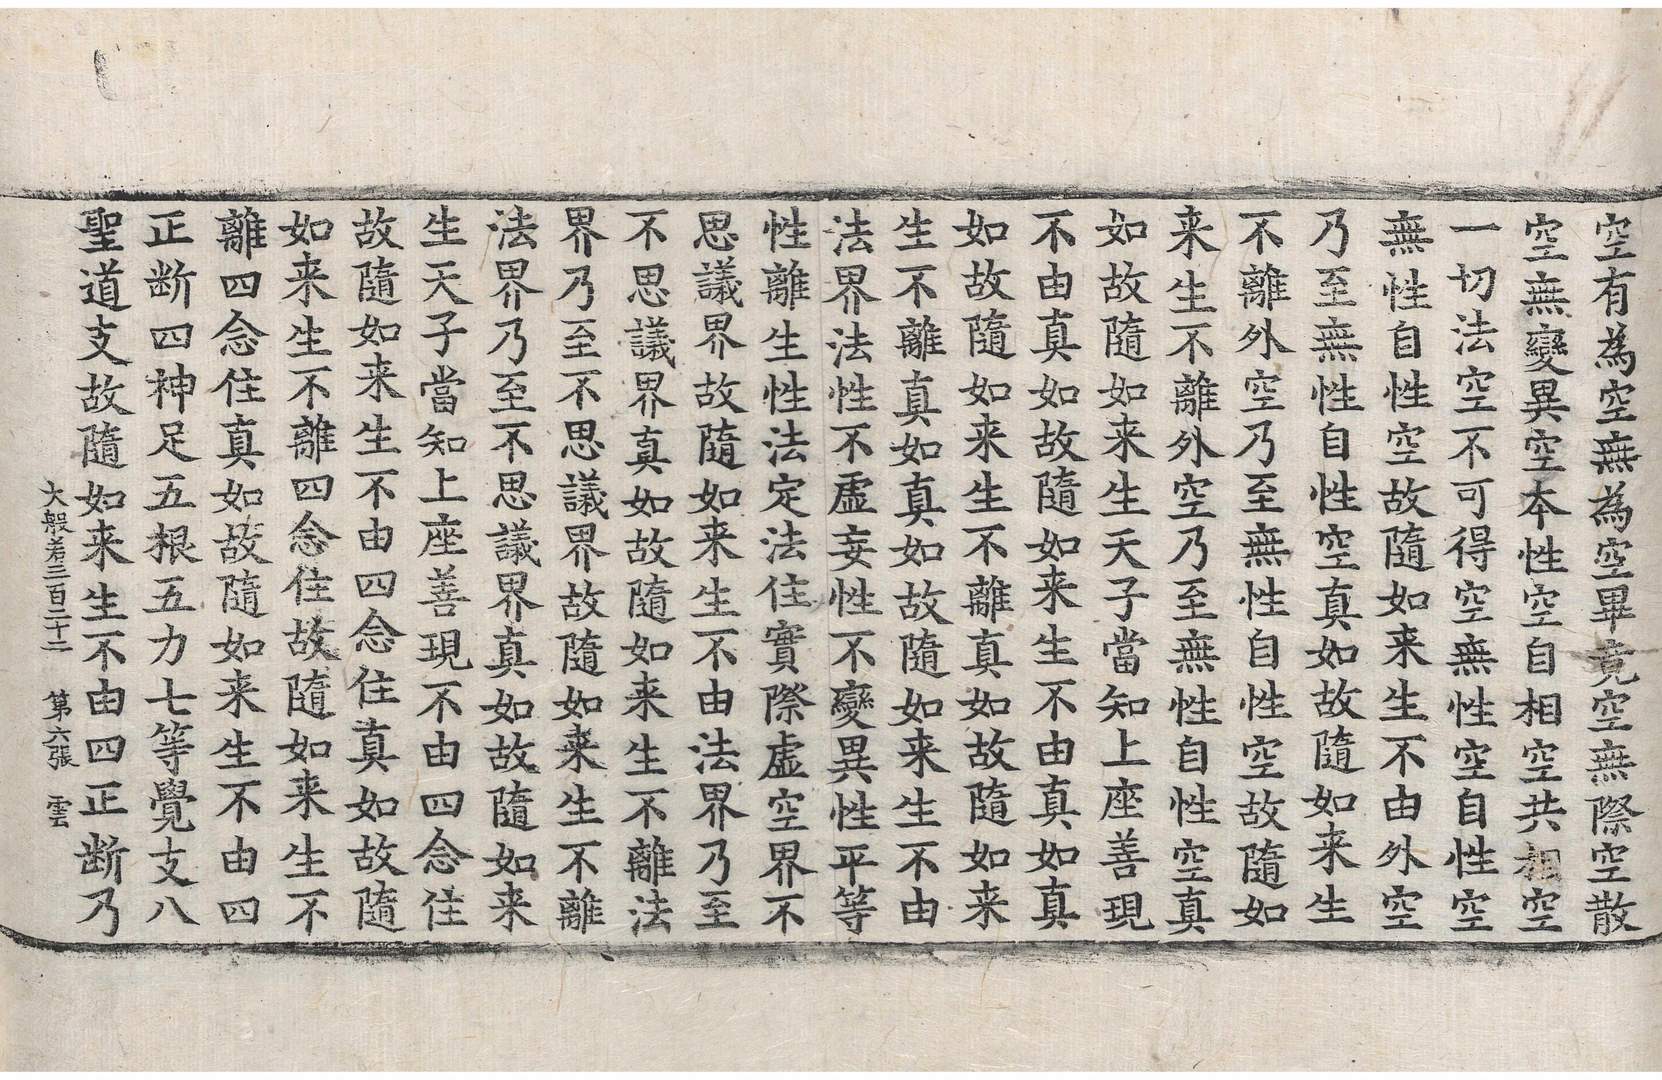 空有為空無為空畢竟空無際空散
空無變異空本性空自相空共相空
一切法空不可得空無性空自性空
無性自性空故隨如来生不由外空
乃至無性自性空真如故隨如来生
不離外空乃至無性自性空故隨如
来生不離外空乃至無性自性空真
如故隨如来生天子當知上座善現
不由真如故隨如来生不由真如真
如故隨如来生不離真如故隨如来
生不離真如真如故隨如来生不由
法界法性不虛妄性不變異性平等
性離生性法定法住實際虛空界不
思議界故隨如来生不由法界乃至
不思議界真如故隨如来生不離法
界乃至不思議界故隨如来生不離
法界乃至不思議界真如故隨如来
生天子當知上座善現不由四念住
故隨如来生不由四念住真如故隨
如来生不離四念住故隨如来生不
離四念住真如故隨如来生不由四
正断四神足五根五力七等覺支八
聖道支故隨如来生不由四正断乃
大般若三百二十二 第六張 雲